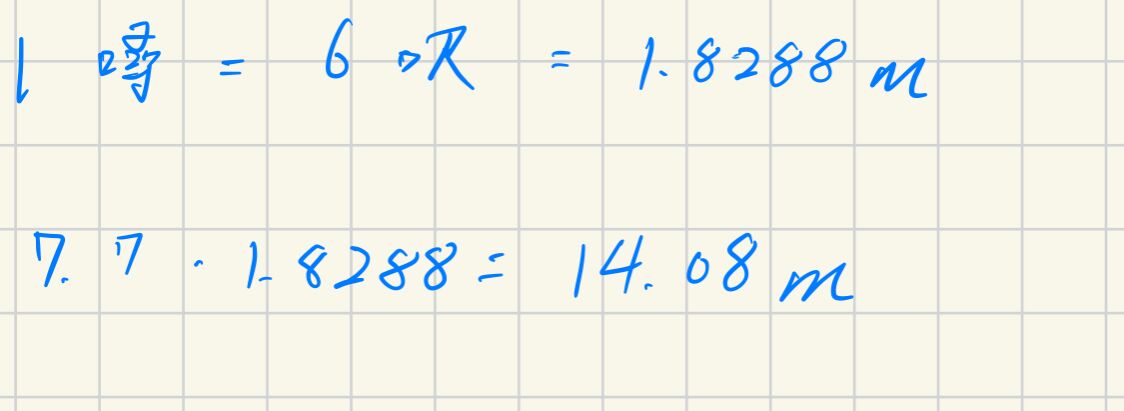 1 噚 = 6 呎 = 1.8288 m
7.7 · 1.8288 = 14.08 m